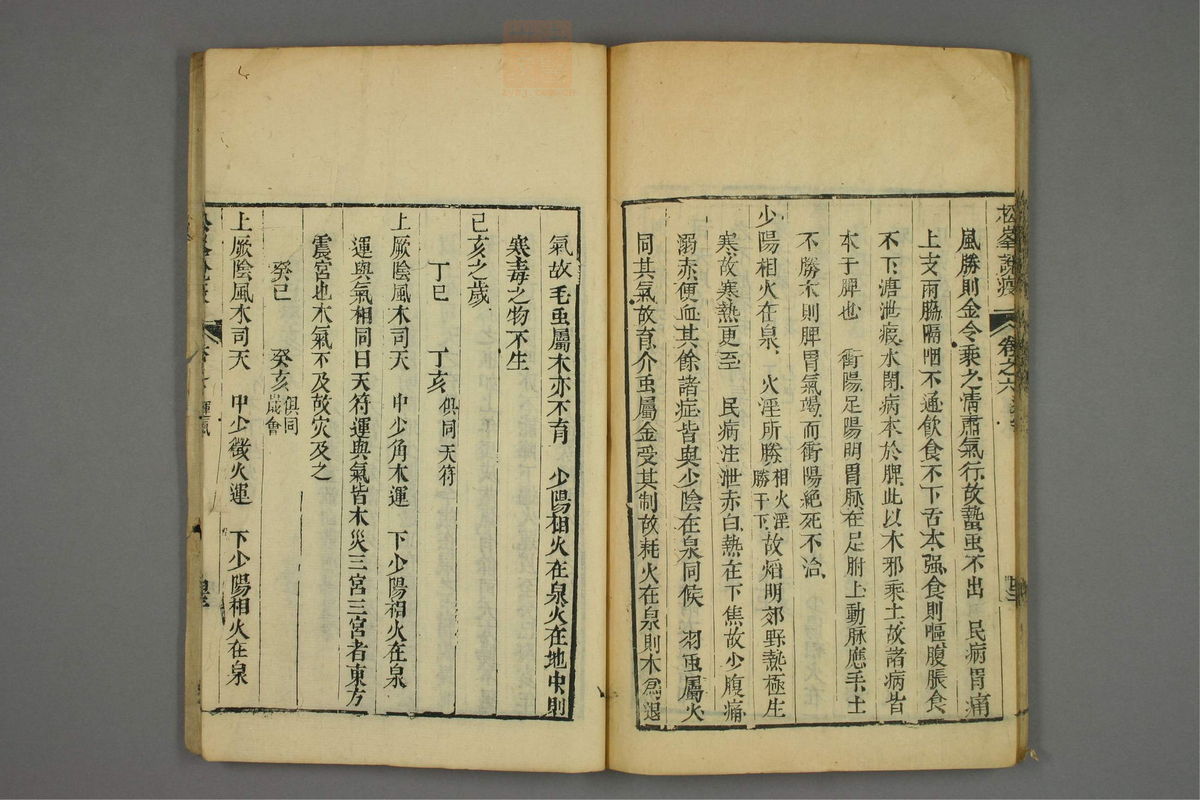 松峯說疫
卷之六
風勝則金令乘之清肅氣行故蟄虫不出　民病胃痛
上支兩脇膈咽不通飲食不下舌本强食則嘔腹脹食
不下溏泄瘕水閉病本於脾此以木邪乘土故諸病皆
本于脾也　衝陽足陽明胃脉在足胕上動脉應手土
不勝木則脾胃氣竭而衝陽絕死不治
少陽相火在泉　火淫所勝相火淫勝于下故焰明郊野熱極生
寒故寒熱更至　民病注泄赤白熱在下焦故少腹痛
溺赤便血其餘諸症皆與少陰在泉同候　羽虫屬火
同其氣故育介虫屬金受其制故耗火在泉則木爲退
氣故毛虫屬木亦不育　少陽相火在泉火在地中則
寒毒之物不生
巳亥之歲
丁巳　丁亥俱同天符
上厥陰風木司天　中少角木運　下少陽相火在泉
運與氣相同曰天符運與氣皆木災三宮三宮者東方
震宮也木氣不及故灾及之
癸巳　癸亥俱同歲會
上厥陰風木司天　中少徵火運　下少陽相火在泉
運氣